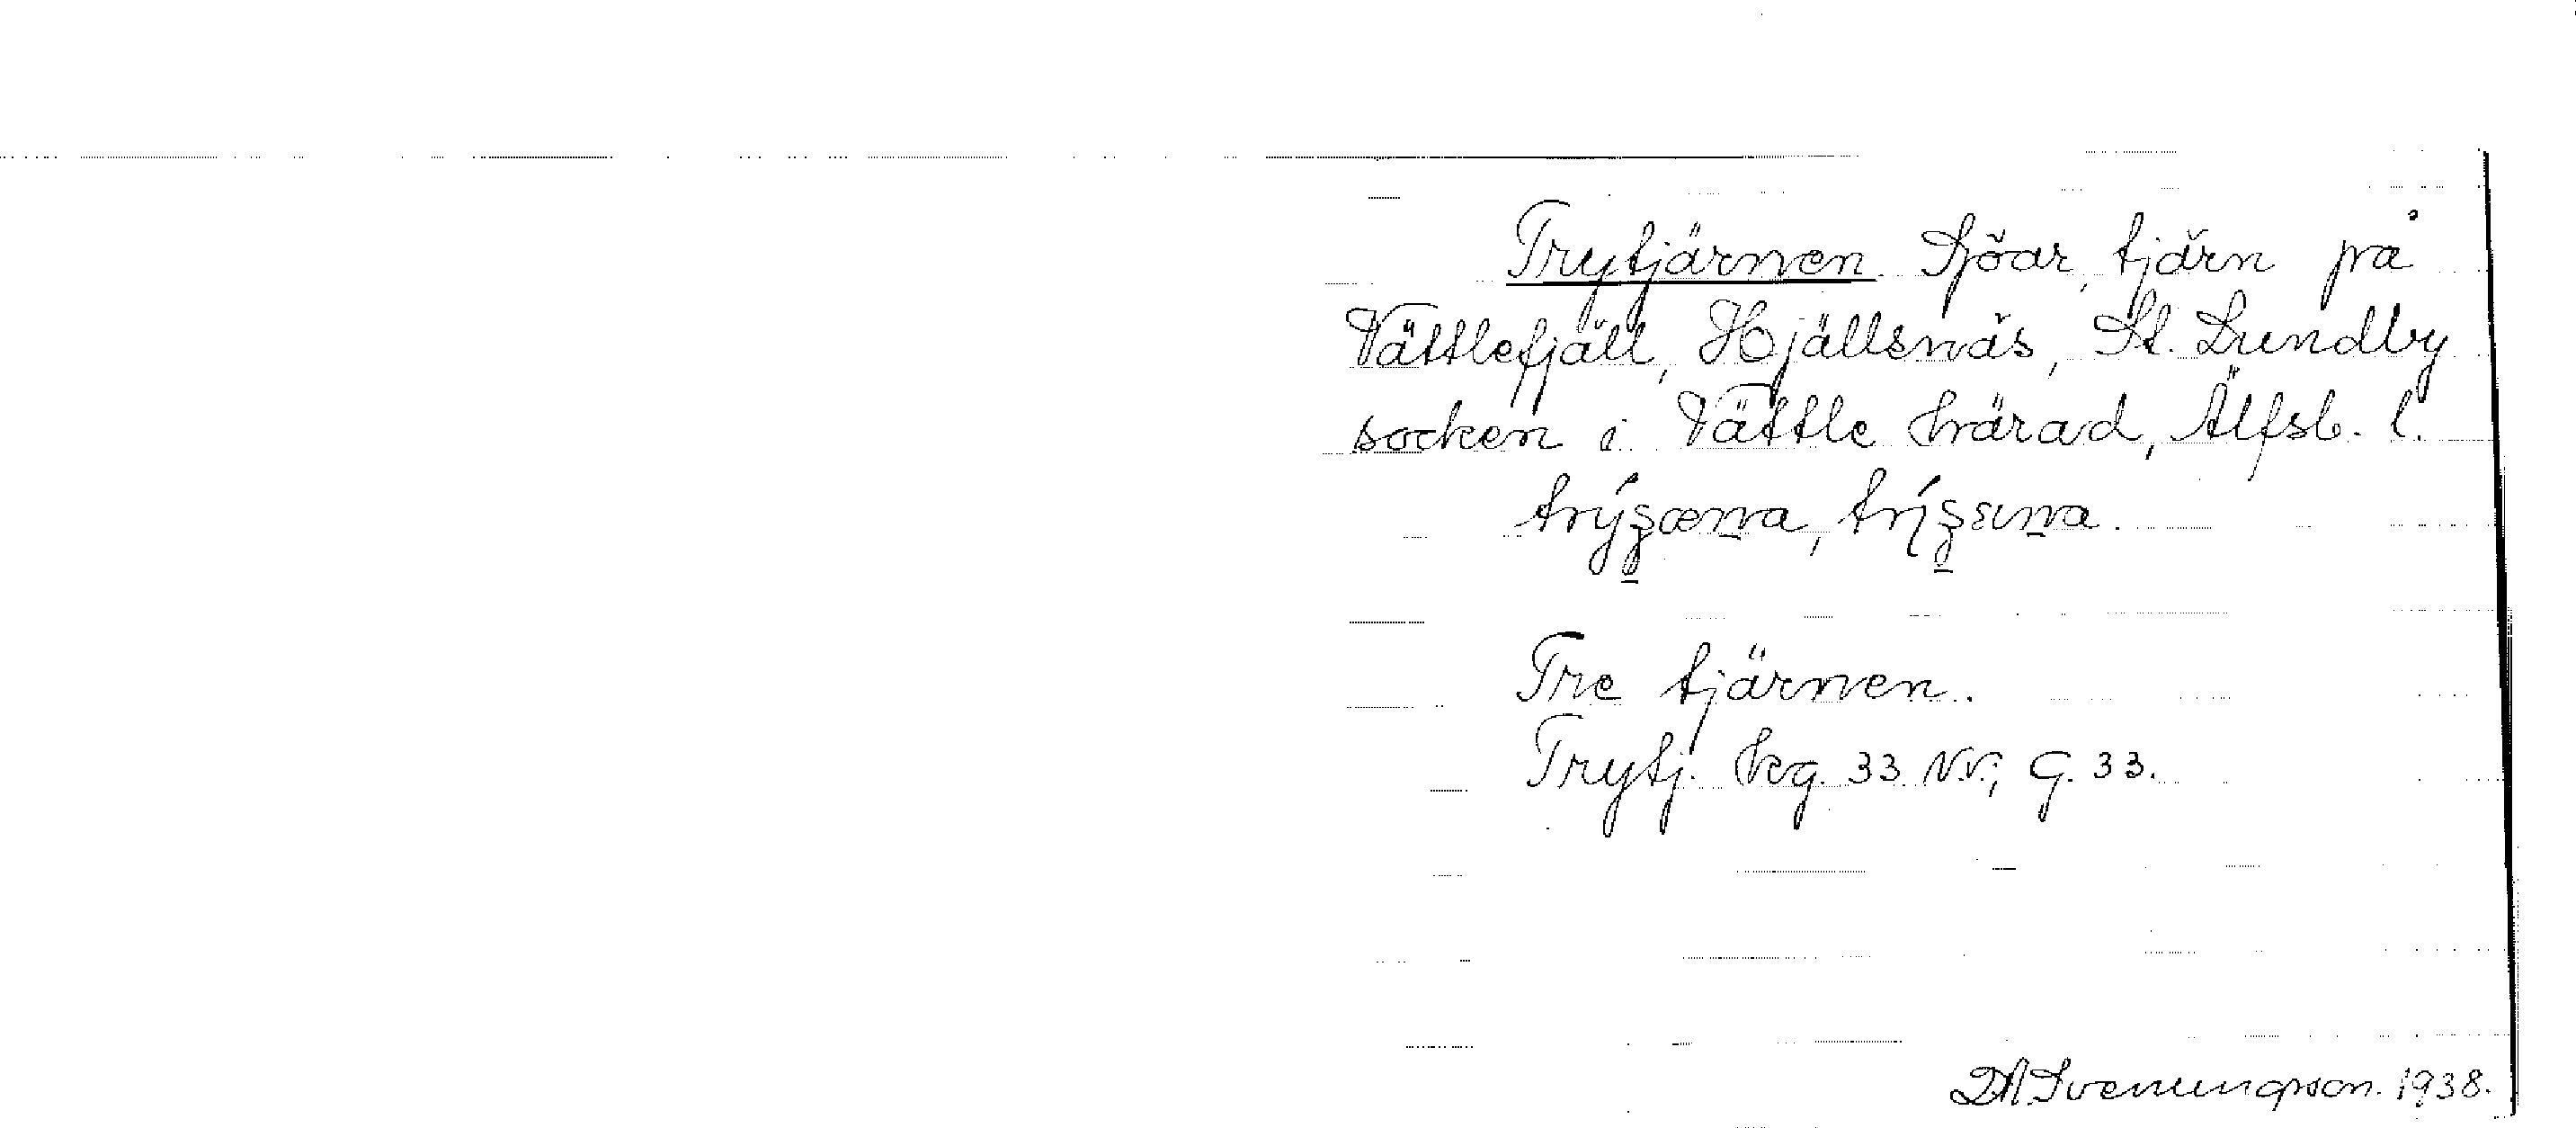 Trytjärnen Sjöar, tjärn på
Vättlefjäll, Hjällsnäs, St. Lundby
socken i Vättle härad, Älfsb. l.
Tre tjärnen.
Trytj. Hkg. 33 NV; G. 33.
Svenungson. 1938.